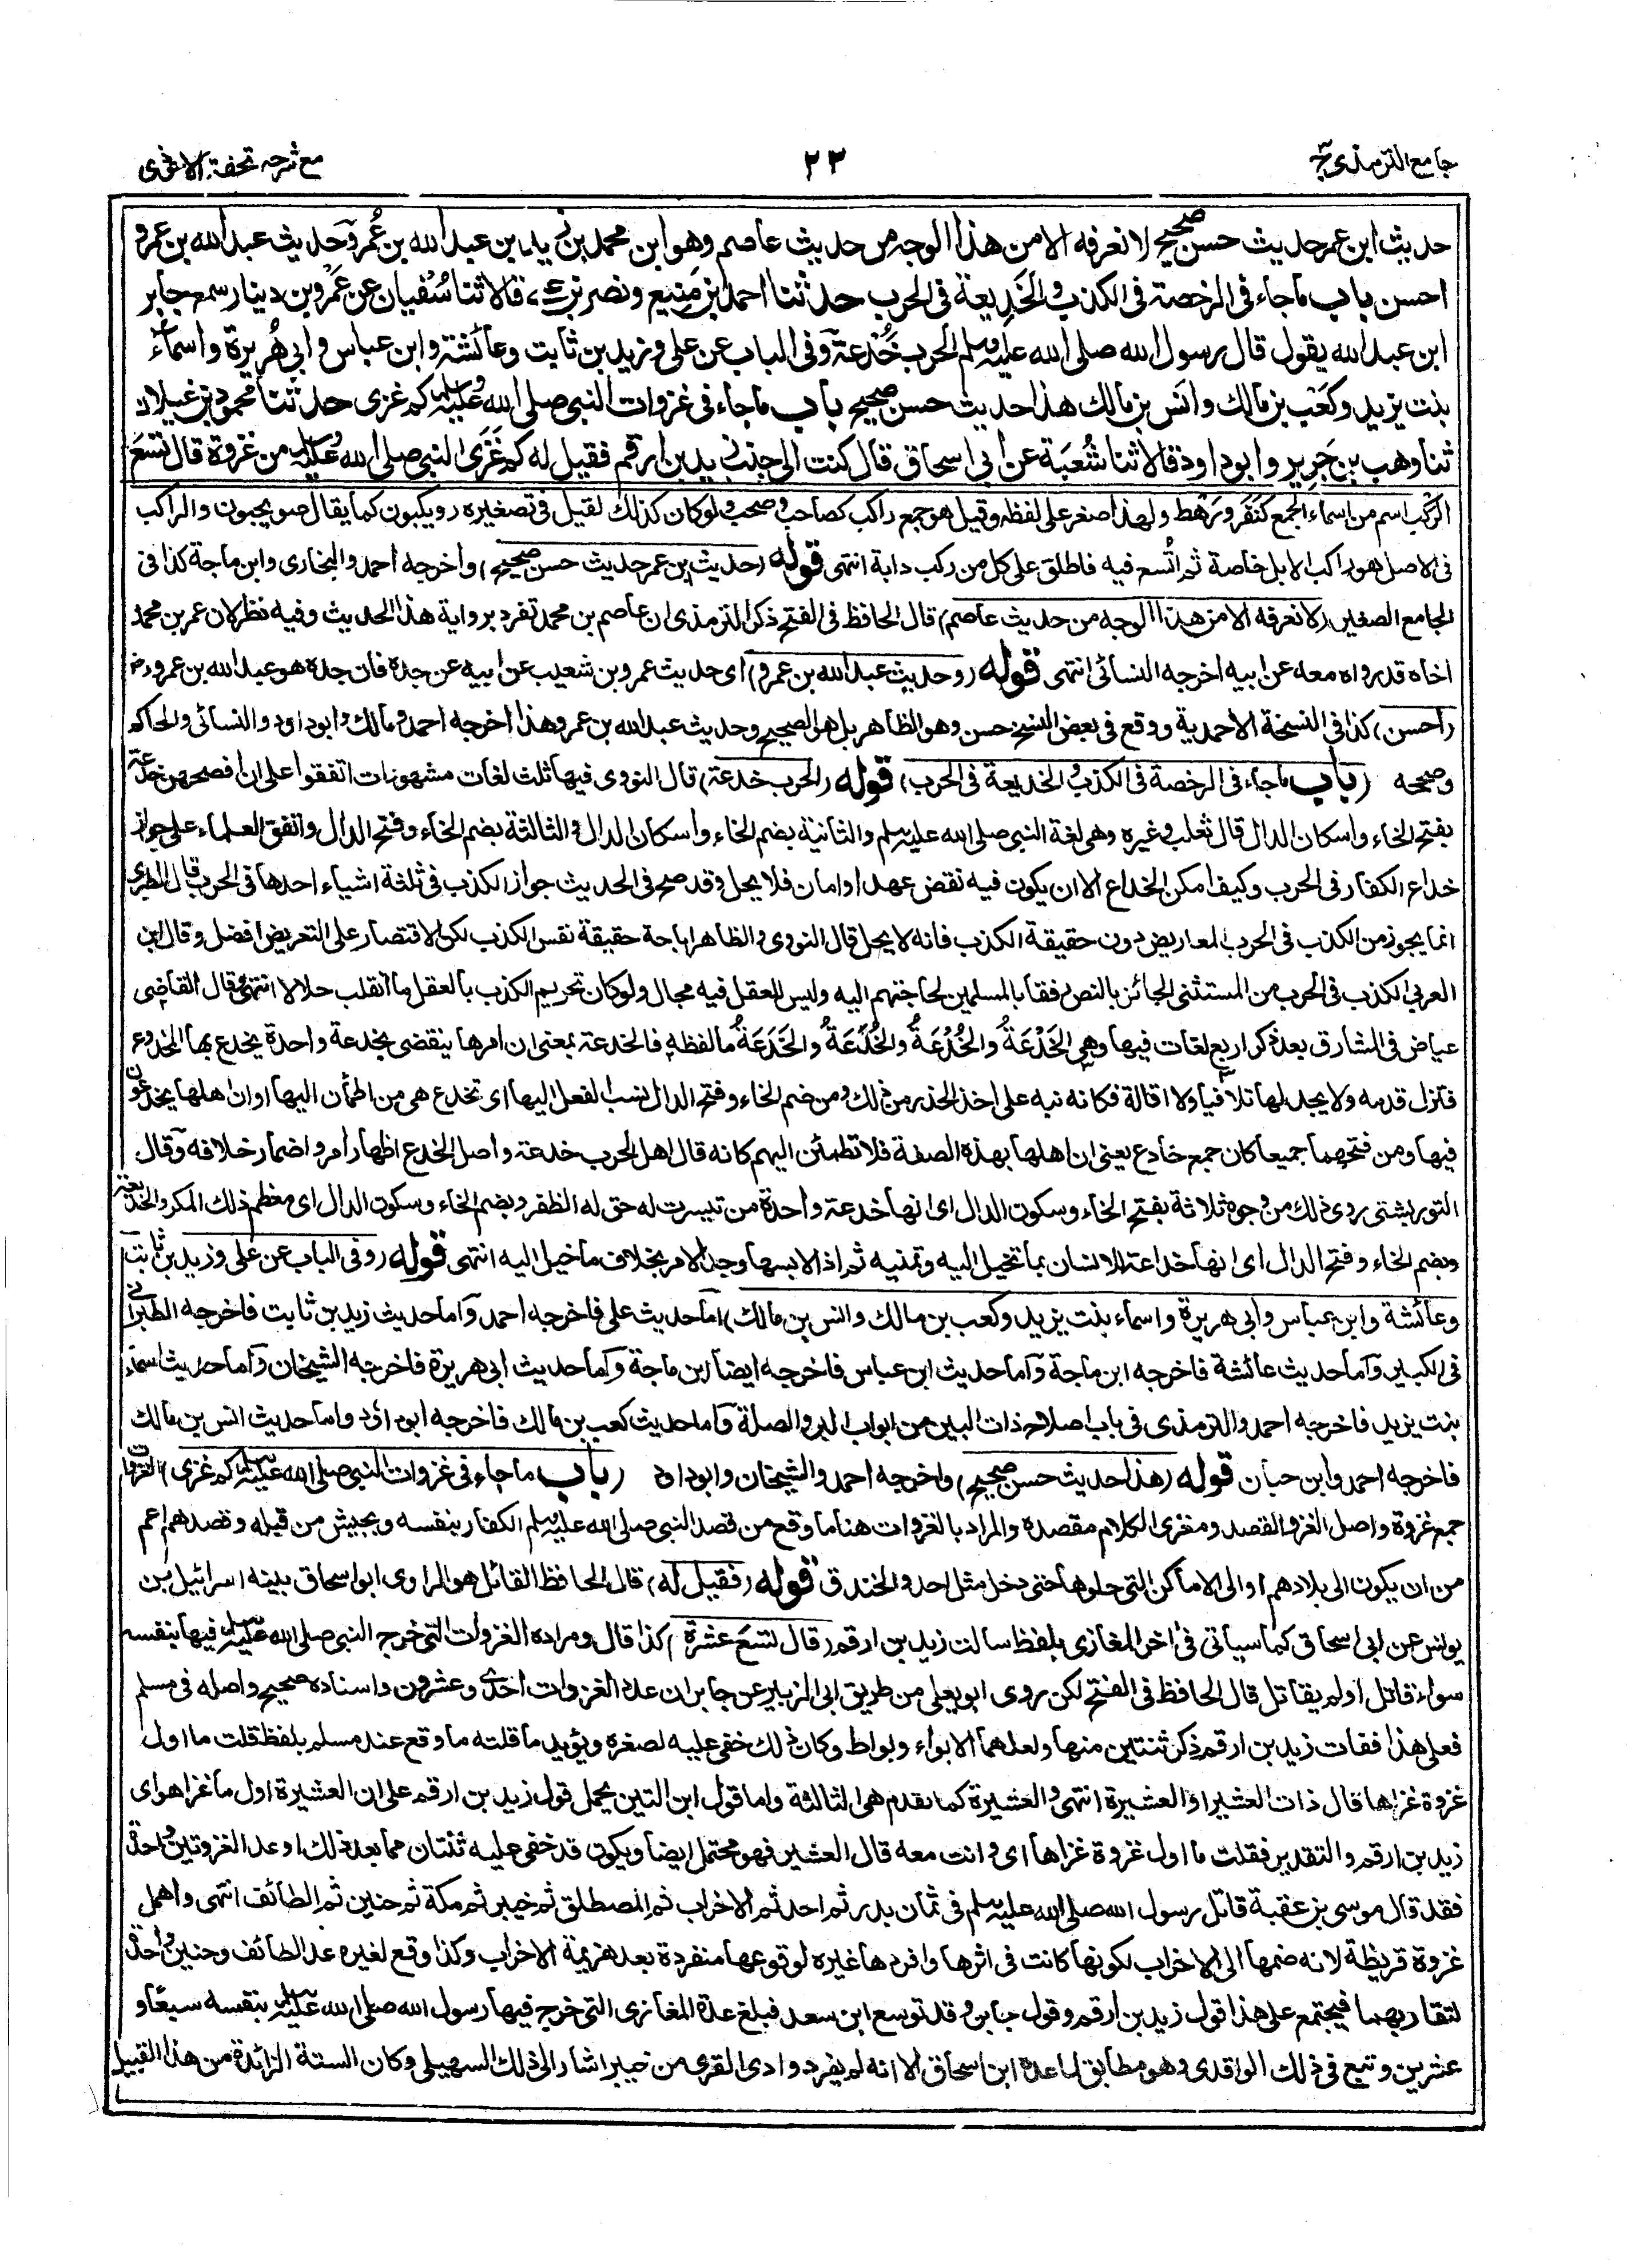 جامع الترمذی ج۳
۲۳
مع شرحه تحفة الاحوذی
حديث ابن عمر حديث حسن صحيح لا نعرفه الا من هذا الوجه من حديث عاصم وهو ابن محمد بن زيد بن عبد الله بن عُمر وحديث عبد الله بن عمرو
احسن باب ما جاء فی الرخصة فی الكذب والخَدِيعة فی الحرب حدثنا احمد بن مَنِيع ونصر بن علی قالا ثنا سُفيان عن عَمْرو بن دينار سمع جابر
ابن عبد الله يقول قال رسول الله صلی الله عليه وسلم الحرب خُدْعة وفی الباب عن علی وزيد بن ثابت وعائشة وابن عباس وابی هُريرة واسماء
بنت يزيد وكَعْب بن مالك وانَس بن مالك هذا حديث حسن صحيح باب ما جاء فی غزوات النبی صلی الله عليه وسلم كم غزی حدثنا محمود بن غيلان
ثنا وهب بن جَرِير وابو داود قالا ثنا شُعبَة عن ابی اسحاق قال كنت الی جنب زيد بن ارقم فقيل له كم غَزَی النبی صلی الله عليه وسلم من غزوة قال تسعَ
الرَّكْب اسم من اسماء الجمع كنَفَر ورَهْط ولهذا صغر علی لفظه وقيل هو جمع راكب كصاحب وصحب ولو كان كذلك لقيل فی تصغيره رويكبون كما يقال صويحبون والراكب
فی الاصل هو راكب الابل خاصة ثم اتُّسع فيه فاطلق علی كل من ركب دابة انتهی قوله (حديث ابن عمر حديث حسن صحيح) واخرجه احمد والبخاری وابن ماجة كذا فی
الجامع الصغير (لا نعرفه الا من هذا الوجه من حديث عاصم) قال الحافظ فی الفتح ذكر الترمذی ان عاصم بن محمد تفرد برواية هذا الحديث وفيه نظر لان عمر بن محمد
اخاه قد رواه معه عن ابيه اخرجه النسائی انتهی قوله (وحديث عبد الله بن عمرو) ای حديث عمرو بن شعيب عن ابيه عن جده فان جده هو عبد الله بن عمرو رضـ
(احسن) كذا فی النسخة الاحمدية ووقع فی بعض النسخ حسن وهو الظاهر بل هو الصحيح وحديث عبد الله بن عمرو هذا اخرجه احمد ومالك وابو داود والنسائی والحاكم
وصححه (باب ما جاء فی الرخصة فی الكذب والخديعة فی الحرب) قوله (الحرب خدعة) قال النووی فيها ثلث لغات مشهورات اتفقوا علی ان افصحهن خدعة
بفتح الخاء واسكان الدال قال ثعلب وغيره وهی لغة النبی صلی الله عليه وسلم والثانية بضم الخاء واسكان الدال والثالثة بضم الخاء وفتح الدال واتفق العلماء علی جواز
خداع الكفار فی الحرب وكيف امكن الخداع الا ان يكون فيه نقض عهد او امان فلا يحل وقد صح فی الحديث جواز الكذب فی ثلثة اشياء احدها فی الحرب قال الطبری
انما يجوز من الكذب فی الحرب المعاريض دون حقيقة الكذب فانه لا يحل قال النووی والظاهر اباحة حقيقة نفس الكذب لكن الاقتصار علی التعريض افضل وقال ابن
العربی الكذب فی الحرب من المستثنی الجائز بالنص رفقا بالمسلمين لحاجتهم اليه وليس للعقل فيه مجال ولو كان تحريم الكذب بالعقل ما انقلب حلالا انتهی وقال القاضی
عياض فی المشارق بعد ذكر اربع لغات فيها وهی الخَدْعَةُ والخُدْعَةُ والخُدَعَةُ والخَدَعَةُ ما لفظه فالخدعة بمعنی ان امرها ينقضی بخدعة واحدة يخدع بها المخدوع
فتزل قدمه ولا يجد لها تلافيا ولا اقالة فكانه نبه علی اخذ الحذر من ذلك ومن ضم الخاء وفتح الدال نسب الفعل اليها ای تخدع هی من اطمأن اليها او ان اهلها يخدعون
فيها ومن فتحهما جميعا كان جمع خادع يعنی ان اهلها بهذه الصفة فلا تطمئن اليهم كانه قال اهل الحرب خدعة واصل الخدع اظهار امر واضمار خلافه وقال
التوربشتی روی ذلك من وجوه ثلاثة بفتح الخاء وسكون الدال ای انها خدعة واحدة من تيسرت له حق له الظفر وبضم الخاء وسكون الدال ای معظم ذلك المكر والخديعة
وبضم الخاء وفتح الدال ای انها خداعة للانسان بما تخيل اليه وتمنيه ثم اذا لابسها وجد الامر بخلاف ما خيل اليه انتهی قوله (وفی الباب عن علی وزيد بن ثابت
وعائشة وابن عباس وابی هريرة واسماء بنت يزيد وكعب بن مالك وانس بن مالك) اما حديث علی فاخرجه احمد واما حديث زيد بن ثابت فاخرجه الطبرانی
فی الكبير واما حديث عائشة فاخرجه ابن ماجة واما حديث ابن عباس فاخرجه ايضا ابن ماجة واما حديث ابی هريرة فاخرجه الشيخان واما حديث اسماء
بنت يزيد فاخرجه احمد والترمذی فی باب اصلاح ذات البين من ابواب البر والصلة واما حديث كعب بن مالك فاخرجه ابو داود واما حديث انس بن مالك
فاخرجه احمد وابن حبان قوله (هذا حديث حسن صحيح) واخرجه احمد والشيخان وابو داود (باب ما جاء فی غزوات النبی صلی الله عليه وسلم كم غزی) الغزوات
جمع غزوة واصل الغزو القصد ومغزی الكلام مقصده والمراد بالغزوات هنا ما وقع من قصد النبی صلی الله عليه وسلم الكفار بنفسه وبجيش من قبله وقصدهم اعم
من ان يكون الی بلادهم او الی الاماكن التی حلوها حتی دخل مثل احد والخندق قوله (فقيل له) قال الحافظ القائل هو الراوی ابو اسحاق بينه اسرائيل بن
يونس عن ابی اسحاق كما سياتی فی اخر المغازی بلفظ سالت زيد بن ارقم (قال تسعَ عشرة) كذا قال ومراده الغزوات التی خرج النبی صلی الله عليه وسلم فيها بنفسه
سواء قاتل او لم يقاتل قال الحافظ فی الفتح لكن روی ابو يعلی من طريق ابی الزبير عن جابر ان عدة الغزوات احدی وعشرون واسناده صحيح واصله فی مسلم
فعلی هذا ففات زيد بن ارقم ذكر ثنتين منها ولعلهما الابواء وبواط وكان ذلك خفی عليه لصغره ويؤيد ما قلته ما وقع عند مسلم بلفظ قلت ما اول
غزوة غزاها قال ذات العشير او العشيرة انتهی والعشيرة كما تقدم هی الثالثة واما قول ابن التين يحمل قول زيد بن ارقم علی ان العشيرة اول ما غزا هو ای
زيد بن ارقم والتقدير فقلت ما اول غزوة غزاها ای وانت معه قال العشير فهو محتمل ايضا ويكون قد خفی عليه ثنتان مما بعد ذلك او عد الغزوتين واحدة
فقد قال موسی بن عقبة قاتل رسول الله صلی الله عليه وسلم فی ثمان بدر ثم احد ثم الاحزاب ثم المصطلق ثم خيبر ثم مكة ثم حنين ثم الطائف انتهی واهمل
غزوة قريظة لانه ضمها الی الاحزاب لكونها كانت فی اثرها وافردها غيره لوقوعها منفردة بعد هزيمة الاحزاب وكذا وقع لغيره عد الطائف وحنين واحدة
لتقاربهما فيجتمع علی هذا قول زيد بن ارقم وقول جابر وقد توسع ابن سعد فبلغ عدة المغازی التی خرج فيها رسول الله صلی الله عليه وسلم بنفسه سبعًا و
عشرين وتبع فی ذلك الواقدی وهو مطابق لما عده ابن اسحاق الا انه لم يفرد وادی القری من خيبر اشار الی ذلك السهيلی وكان الستة الزائدة من هذا القبيل